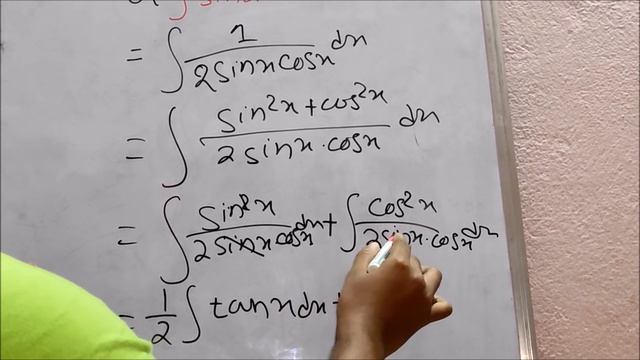 ∫ sin
= ∫ 1/(2sinxcosx) dx
= ∫ (sin²x + cos²x)/(2sinx·cosx) dx
= ∫ sin²x/(2sinxcosx) dx + ∫ cos²x/(2sinx·cosx) dx
= 1/2 ∫ tanxdx